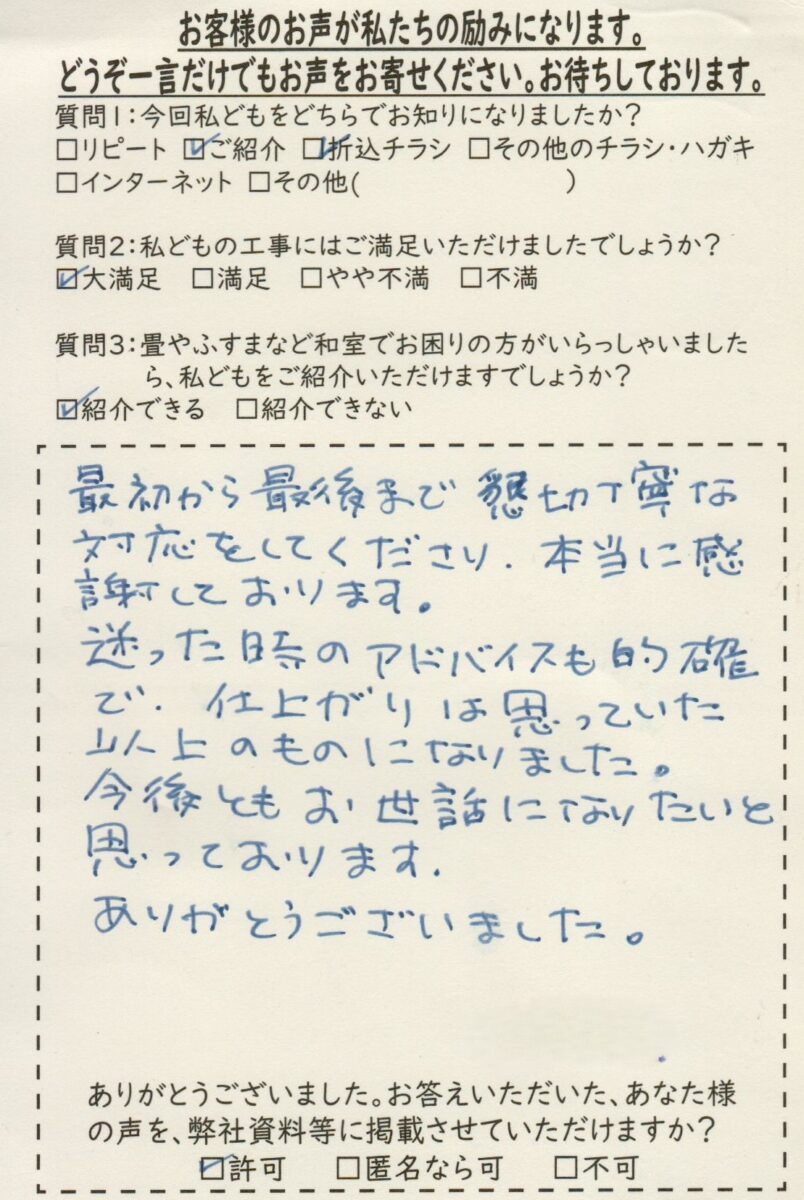 お客様のお声が私たちの励みになります。
どうぞ一言だけでもお声をお寄せください。お待ちしております。
質問1:今回私どもをどちらでお知りになりましたか?
□リピート ☑ご紹介 ☑折込チラシ □その他のチラシ・ハガキ
□インターネット □その他( )
質問2:私どもの工事にはご満足いただけましたでしょうか?
☑大満足 □満足 □やや不満 □不満
質問3:畳やふすまなど和室でお困りの方がいらっしゃいました
ら、私どもをご紹介いただけますでしょうか?
☑紹介できる □紹介できない
最初から最後まで懇切丁寧な
対応をしてくださり、本当に感
謝しております。
迷った時のアドバイスも的確
で、仕上がりは思っていた
以上のものになりました。
今後ともお世話になりたいと
思っております。
ありがとうございました。
ありがとうございました。お答えいただいた、あなた様
の声を、弊社資料等に掲載させていただけますか?
☑許可 □匿名なら可 □不可